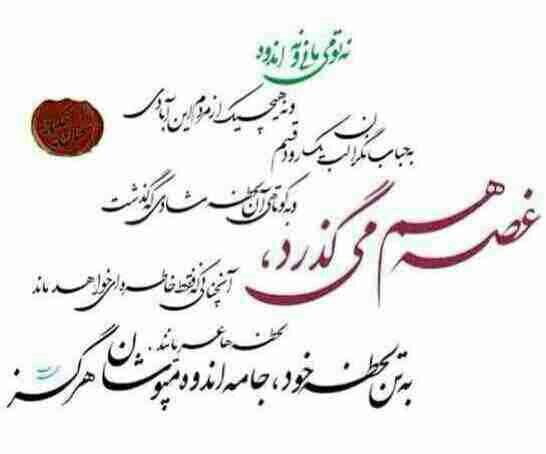 نه تو می مانی و نه اندوه
و نه هیچیک از مردم این آبادی
به حباب نگران لب یک رود قسم
و به کوتاهی آن لحظه شادی که گذشت
غصه هم می گذرد،
آنچنانی که فقط خاطره ای خواهد ماند
لحظه ها عریانند.
به تن لحظه خود، جامه اندوه مپوشان هرگز